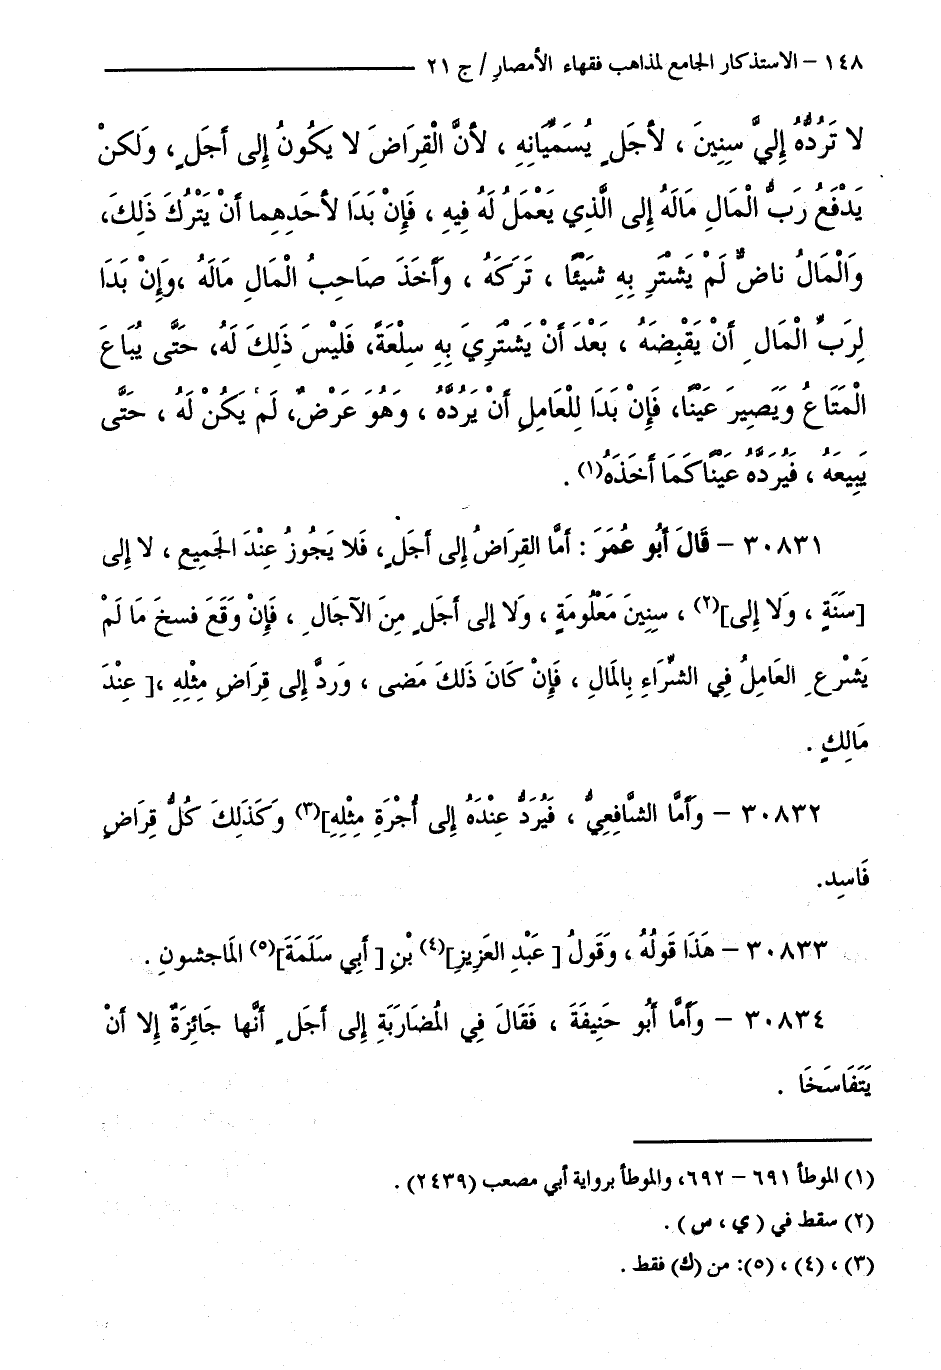 ١٤٨ – الاستذكار الجامع لمذاهب فقهاء الأمصار / ج ٢١
لا تَرُدُّهُ إِليَّ سِنِينَ ، لأجَلٍ يُسَمِّيَانِهِ ، لأنَّ الْقِرَاضَ لا يَكُونُ إِلى أجَلٍ ، وَلكنْ
يَدْفَعُ رَبُّ الْمَالِ مَالَهُ إِلى الَّذِي يَعْمَلُ لَهُ فِيهِ ، فَإِنْ بَدَا لأحَدِهِما أنْ يَتْرُكَ ذَلِكَ،
وَالْمَالُ ناضٌّ لَمْ يَشْتَرِ بِهِ شَيْئًا ، تَرَكَهُ ، وَأخَذَ صَاحِبُ الْمَالِ مَالَهُ ،وَإِنْ بَدَا
لِرَبِّ الْمَالِ أنْ يَقْبِضَهُ ، بَعْدَ أنْ يَشْتَرِيَ بِهِ سِلْعَةً، فَلَيْسَ ذَلِكَ لَهُ، حَتَّى يُبَاعَ
الْمَتَاعُ وَيَصِيرَ عَيْنًا، فَإِنْ بَدَا لِلْعَامِلِ أنْ يَرُدَّهُ ، وَهُوَ عَرْضٌ، لَمْ يَكُنْ لَهُ ، حَتَّى
يَبِيعَهُ ، فَيَرُدَّهُ عَيْنًاكَمَا أخَذَهُ(١) .
٣٠٨٣١ – قَالَ أبُو عُمَرَ : أمَّا القِرَاضُ إِلى أجَلٍ، فَلا يَجُوزُ عِنْدَ الجَمِيعِ ، لا إِلى
[سَنَةٍ ، وَلا إِلى](٢) ، سِنِينَ مَعْلُومَةٍ ، وَلا إلى أجَلٍ مِنَ الآجَالِ ، فَإِنْ وَقَعَ فسخَ مَا لَمْ
يَشْرعِ العَامِلُ فِي الشِّرَاءِ بِالمَالِ ، فَإِنْ كَانَ ذَلكَ مَضى ، وَردَّ إِلى قِرَاضِ مِثْلِهِ ،[ عِنْدَ
مَالِكٍ .
٣٠٨٣٢ – وَأمَّا الشَّافِعِيُّ ، فَيُرَدُّ عِنْدَهُ إِلى أُجْرَةِ مِثْلِهِ](٣) وَكَذَلِكَ كُلُّ قِرَاضٍ
فَاسِد.
٣٠٨٣٣ – هَذَا قَولُهُ ، وَقَولُ [ عَبْدِ العَزِيزِ](٤) بْنِ [ أبِي سَلَمَةَ](٥) المَاجشونِ .
٣٠٨٣٤ – وَأمَّا أبُو حَنِيفَةَ ، فَقَالَ فِي المُضَارَبَةِ إِلى أجَلٍ أنَّها جَائِزَةٌ إِلا أنْ
يَتَفَاسَخَا .
(١) الموطأ ٦٩١ – ٦٩٢، والموطأ برواية أبي مصعب (٢٤٣٩) .
(٢) سقط في ( ي ، س ) .
(٣) ، (٤) ، (٥): من (ك) فقط .